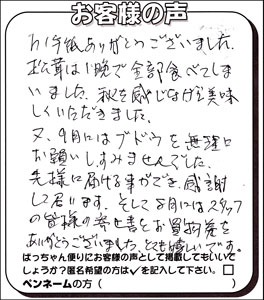 お客様の声
お手紙ありがとうございました。
松茸は1晩で全部食べてしま
いました。秋を感じながら美味
しくいただきました。
又、9月にはブドウを無理に
お願いしすみませんでした。
先様に届ける事ができ、感謝
して居ります。そして8月にはスタッフ
の皆様の寄せ書をお
ありがとうございました。とても嬉しいです。
ばっちゃん便りにお客様の声として掲載してもいいで
しょうか?匿名希望の方は✓を記入して下さい。□
ペンネームの方(